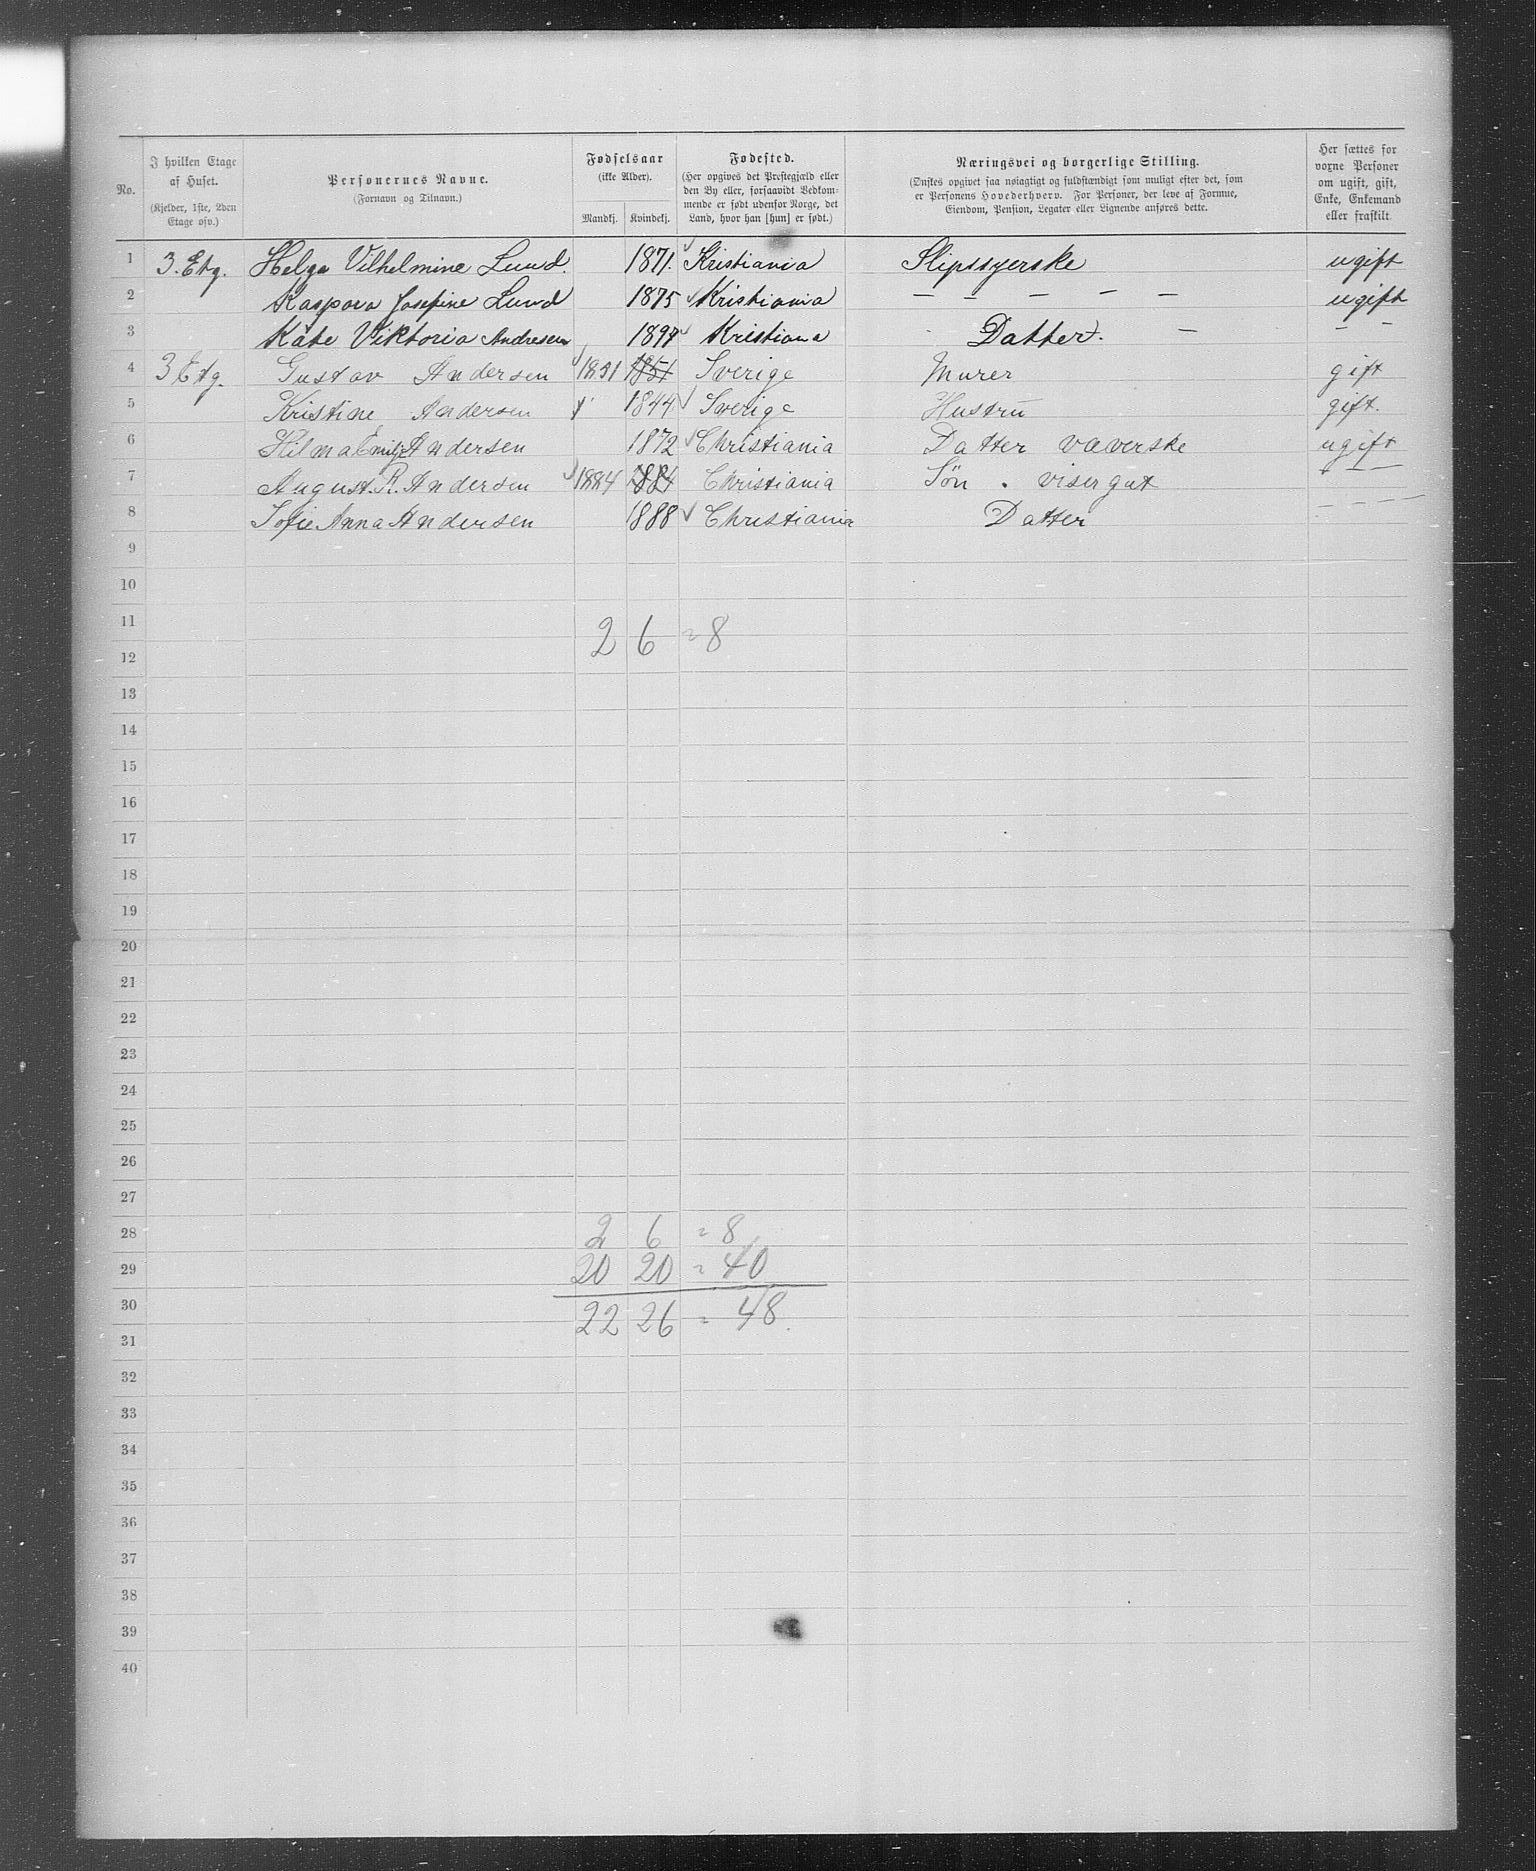 No. | I hvilken Etage af Huset. (Kjelder, 1ste, 2den Etage osv.) | Personernes Navne. (Fornavn og Tilnavn.) | Fødselsaar (ikke Alder). Mandkj. Kvindekj. | Fødested. (Her opgives det Prestegjæld eller den By eller, forsaavidt Vedkommende er født udenfor Norge, det Land, hvor han [hun] er født.) | Næringsvei og borgerlige Stilling. (Ønskes opgivet saa nøiagtigt og fuldstændigt som muligt efter det, som er Personens Hovederhverv. For Personer, der leve af Formue, Eiendom, Pension, Legater eller Lignende anføres dette.) | Her sættes for voxne Personer om ugift, gift, Enke, Enkemand eller fraskilt.
1 3. Etg. Helga Vilhelmine Lund. 1871. Kristiania Slipssyerske ugift
2 Kaspara Josefine Lund 1875 Kristiania — — — — — ugift
3 Käte Viktoria Andresen 1897 Kristiana Datter. — — —
4 3 Etg. Gustav Andersen 1851 1851 Sverige Murer gift
5 Kristine Andersen 1844 Sverige Hustru gift.
6 Hilma Emilj Andersen 1872 Christiania Datter væverske ugift
7 August. R. Andersen 1884 1884 Christiania Søn . visergut — — —
8 Sofie Anna Andersen 1888 Christiania Datter — — — —
9
10
11
2 6 = 8
12
13
14
15
16
17
18
19
20
21
22
23
24
25
26
27
28 2 6 = 8
29 20 20 = 40
30 22 26 = 48.
31
32
33
34
35
36
37
38
39
40